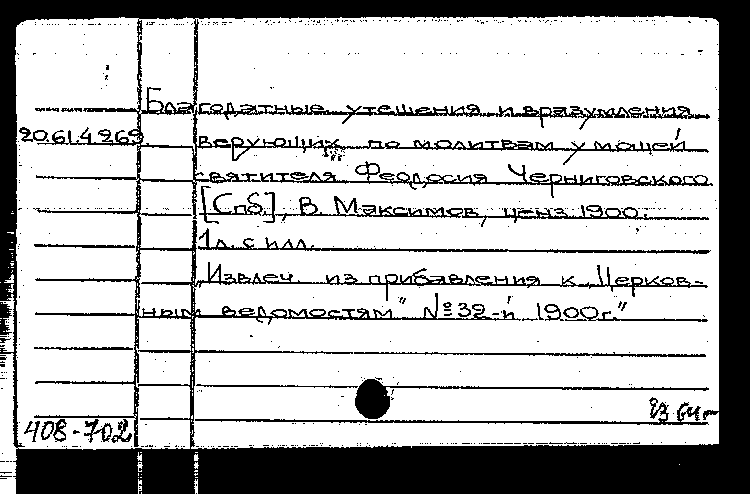 Благодатные утешения и вразумления
20.61.4.269 верующих по молитвам у мощей
святителя Феодосия Черниговского
[Спб], В. Максимов, ценз. 1900.
1л. с илл.
„Извлеч. из прибавления к „Церков-
ным ведомостям" №32-й 1900г."
408-702